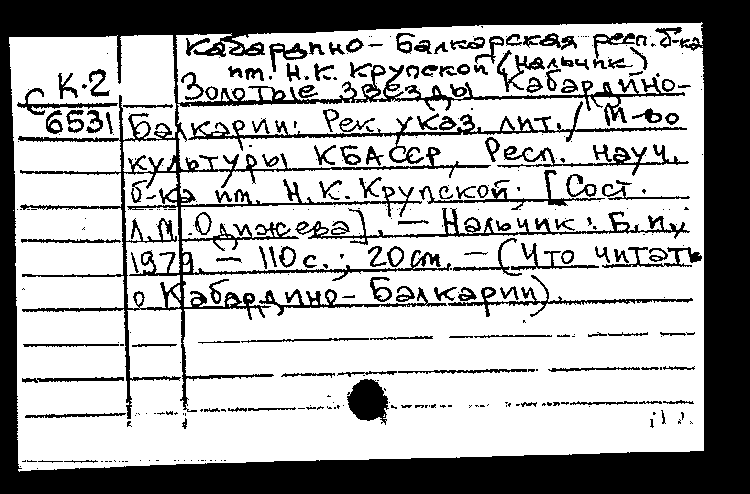 Кабардино-Балкарская респ. б-ка
им. Н.К. Крупской (Нальчик)
К-2
Золотые звезды Кабардино-
С 6531
Балкарии: Рек. указ. лит. / М-во
культуры КБАССР, Респ. науч.
б-ка им. Н.К. Крупской; [Сост.
Л.М. Одижева]. — Нальчик: Б.и.,
1979. — 110 с.; 20 см. — (Что читать
о Кабардино-Балкарии).